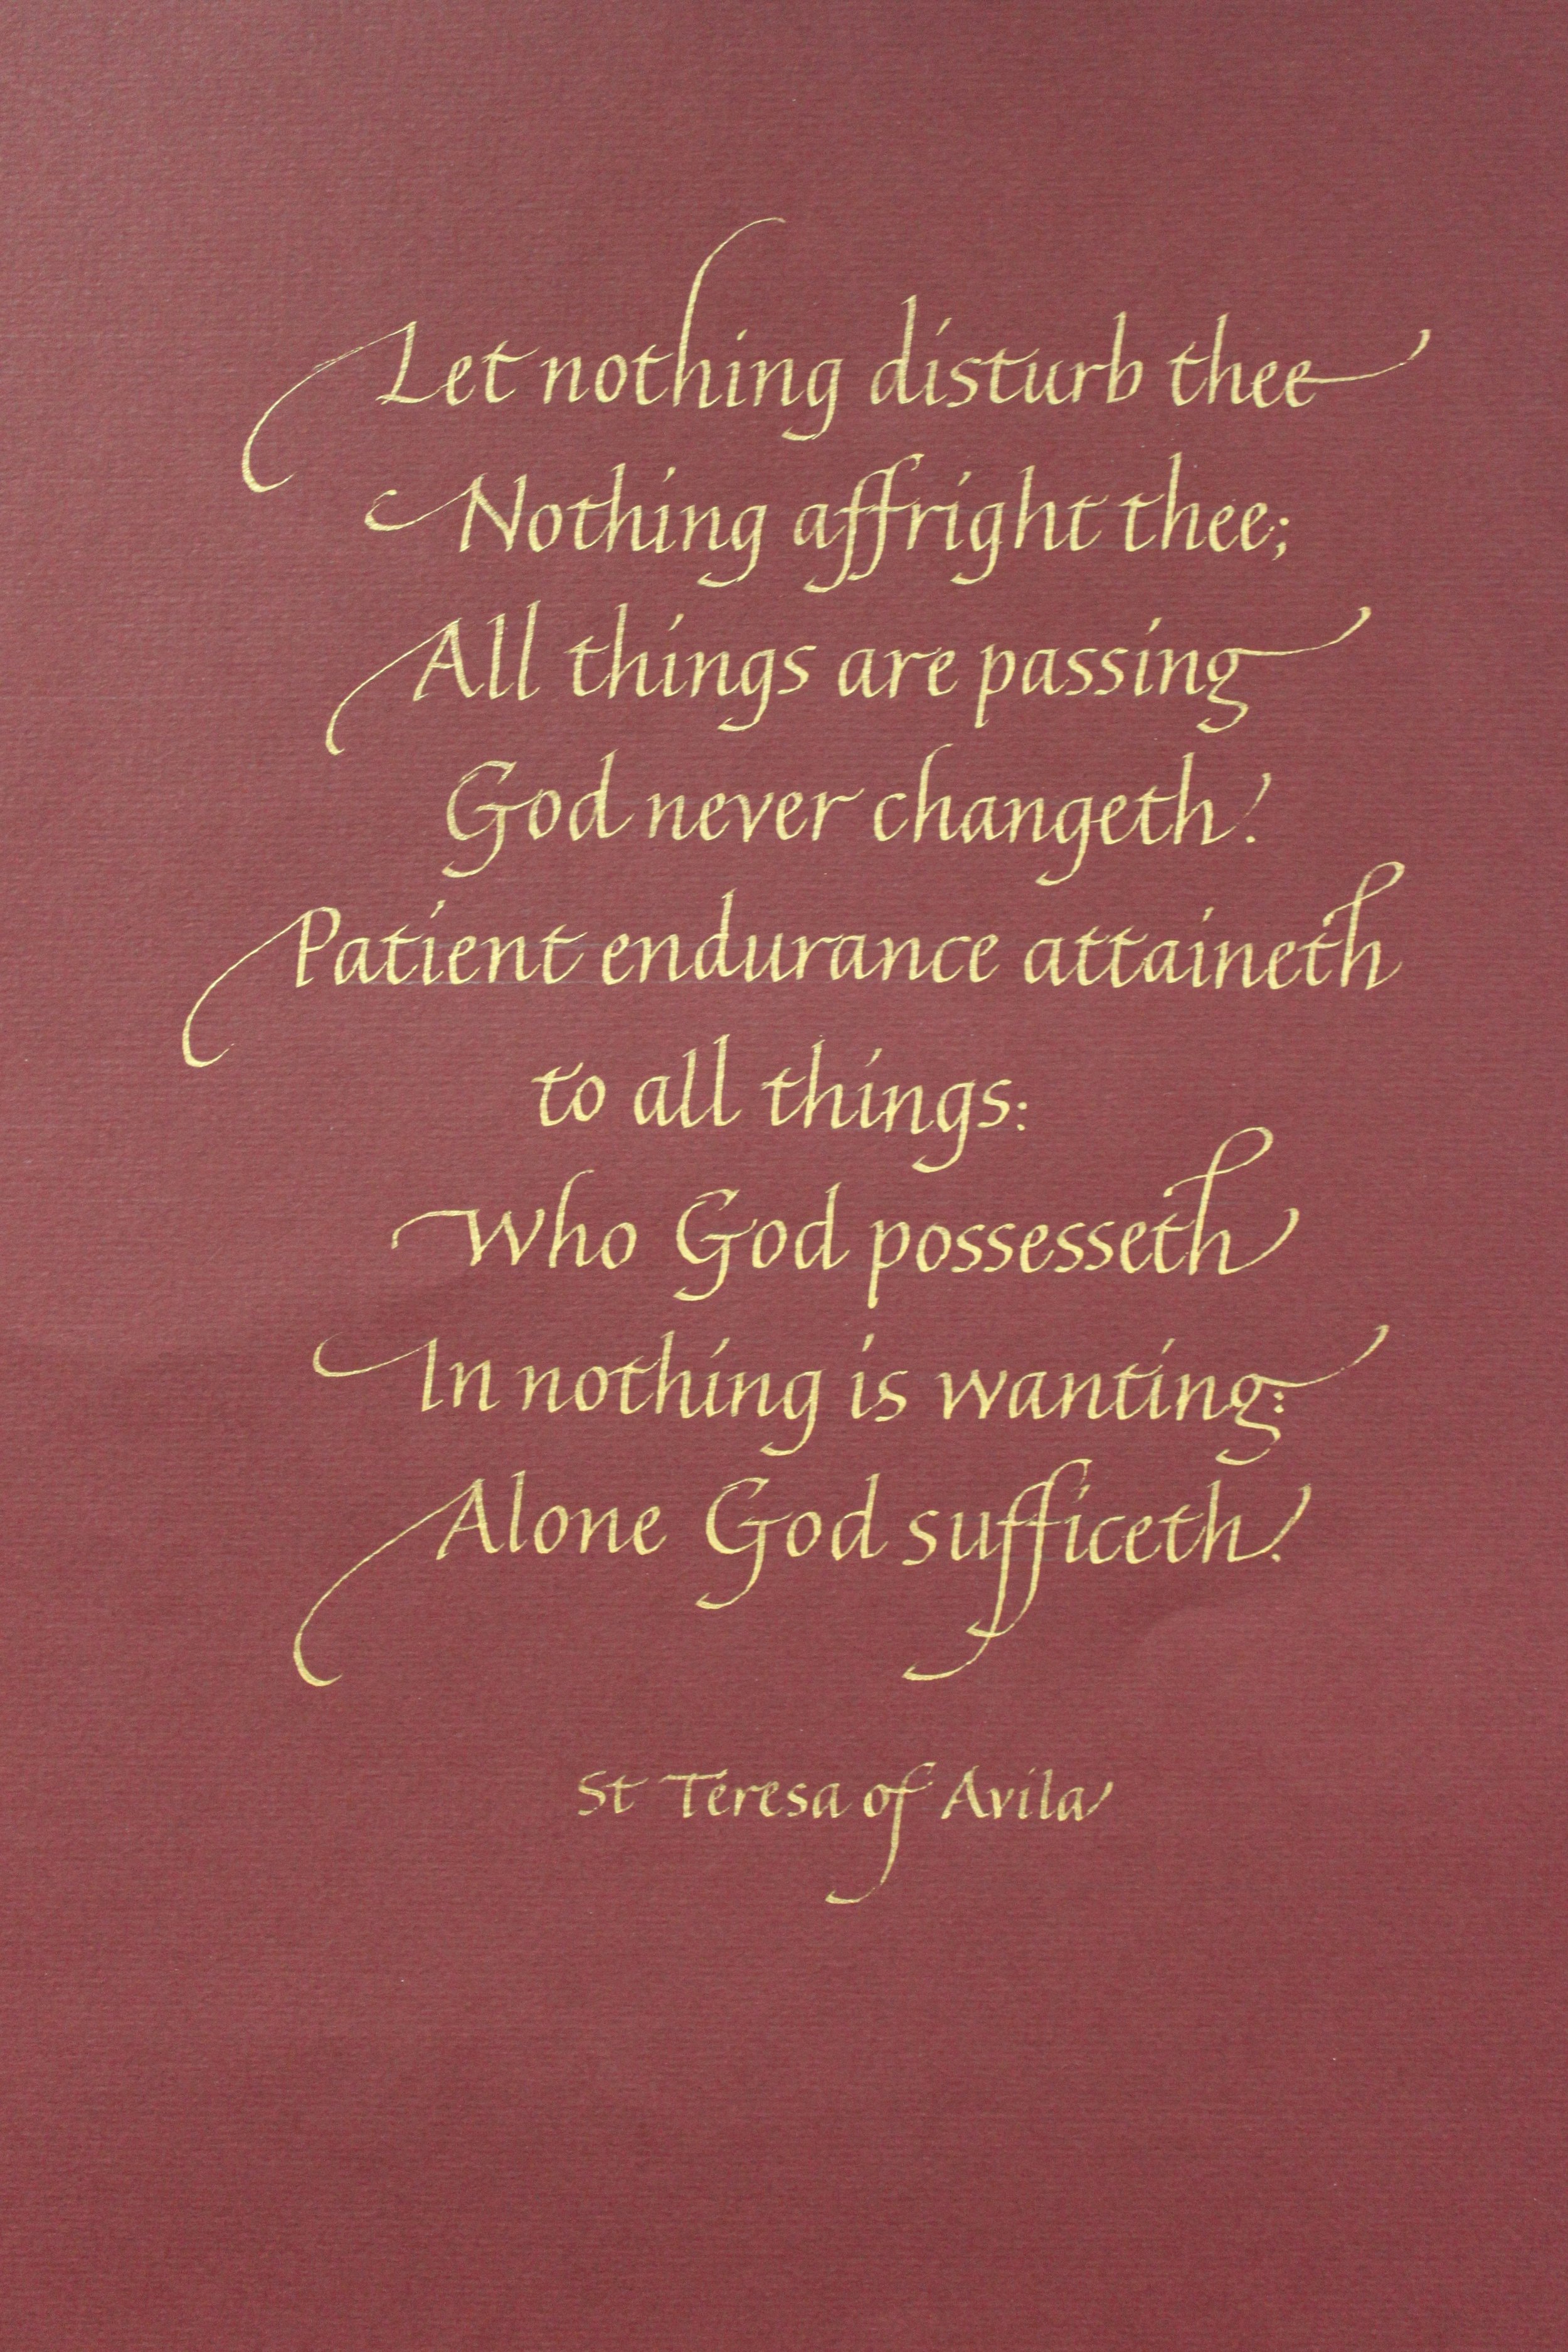 Let nothing disturb thee
Nothing affright thee;
All things are passing
God never changeth!
Patient endurance attaineth
to all things:
Who God possesseth
In nothing is wanting:
Alone God sufficeth.
St Teresa of Avila